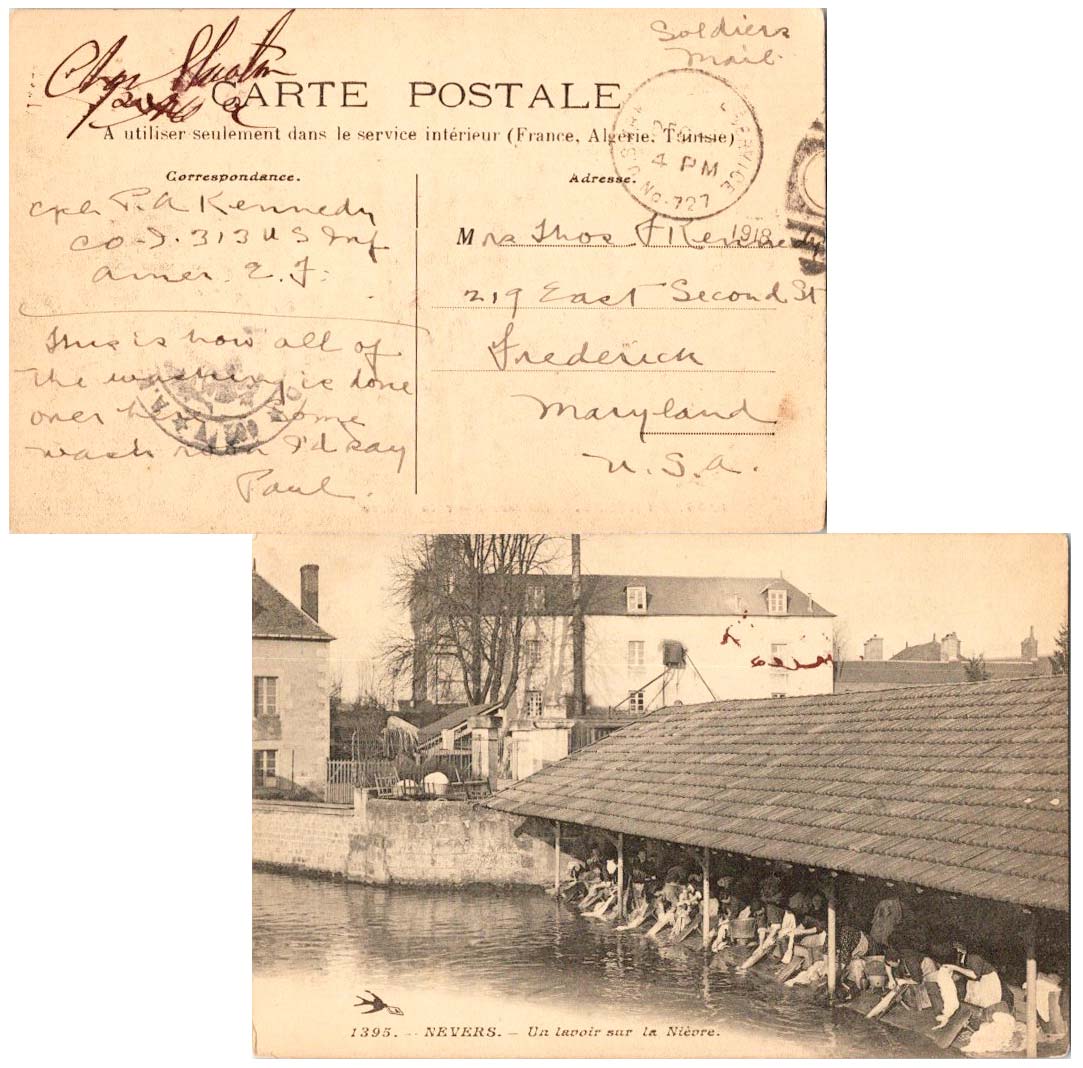 Soldiers
Mail.
CARTE POSTALE
A utiliser seulement dans le service intérieur (France, Algérie, Tunisie)
SERVICE
4 PM
No. 727
1918
Correspondance.
Cpl. P. A Kennedy
Co. I. 313 U S Inf
Amer. E. F.
This is how all of
the washing is done
over here Some
wash room I'd say
Paul.
Adresse.
Mrs Thos F Kennedy
219 East Second St
Frederick
Maryland
U. S. A.
1395. - NEVERS. - Un lavoir sur la Nièvre.